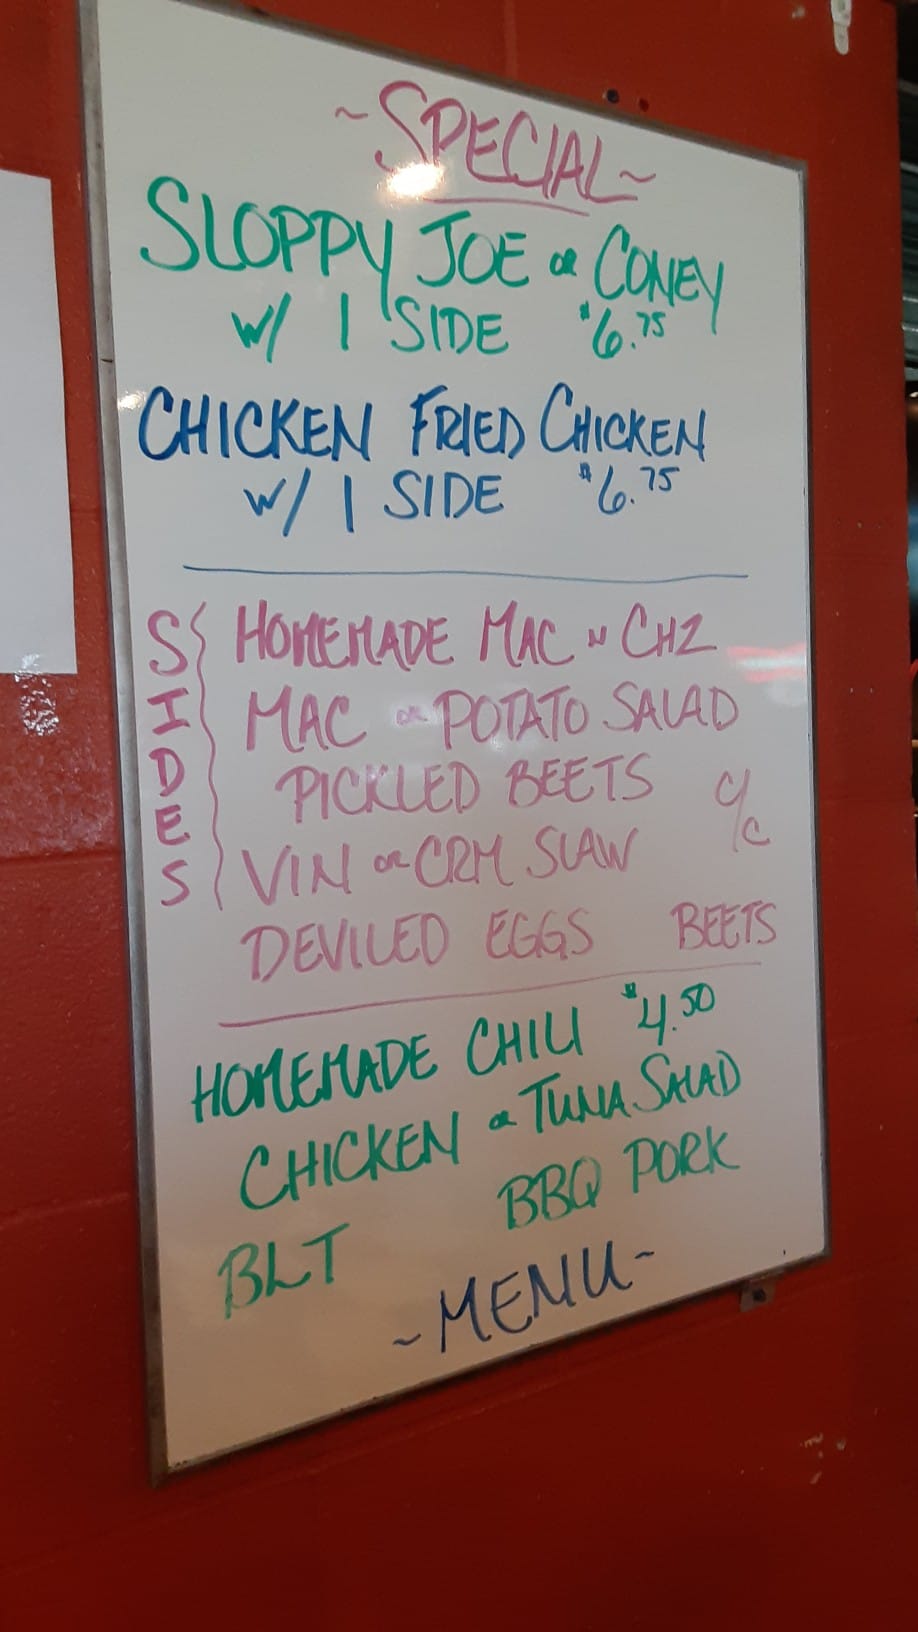 ~SPECIAL~
SLOPPY JOE or CONEY
W/ 1 SIDE $6.75
CHICKEN FRIED CHICKEN
W/ 1 SIDE $6.75
SIDES
HOMEMADE MAC N CHZ
MAC or POTATO SALAD
PICKLED BEETS C/C
VIN or CRM SLAW
DEVILED EGGS BEETS
HOMEMADE CHILI $4.50
CHICKEN or TUNA SALAD
BLT BBQ PORK
~MENU~